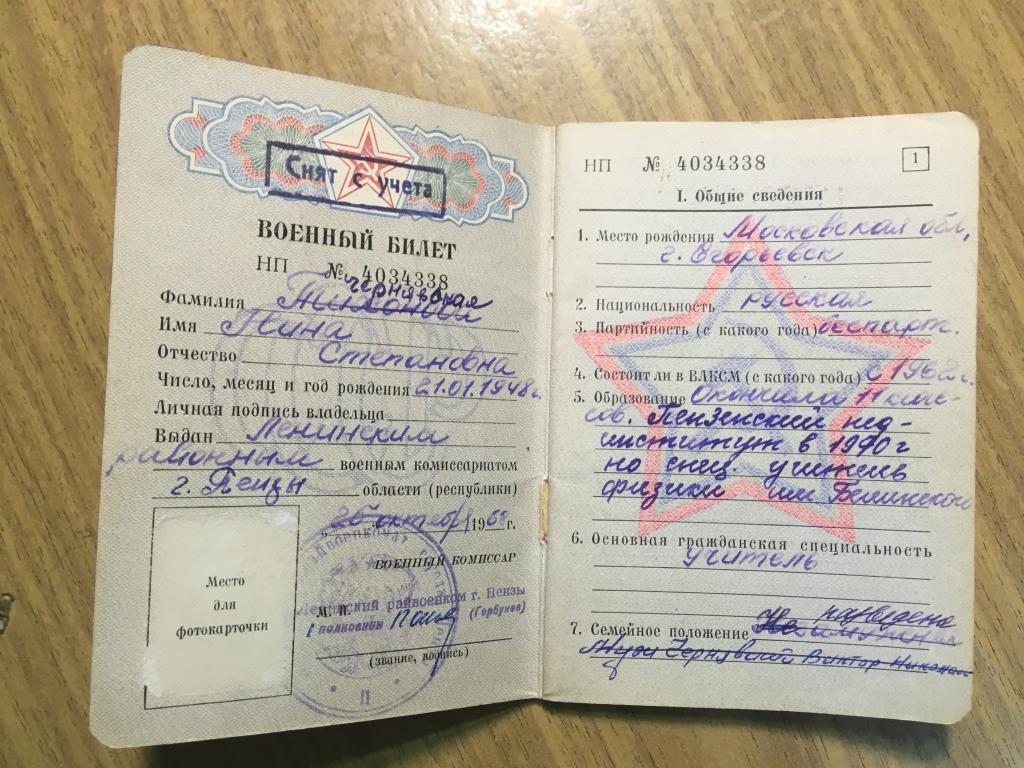 Снят с учета
ВОЕННЫЙ БИЛЕТ
НП № 4034338
Чернявская
Фамилия Тихонова
Имя Нина
Отчество Степановна
Число, месяц и год рождения 21.01.1948г.
Личная подпись владельца
Выдан Ленинским
районным военным комиссариатом
г. Пензы области (республики)
"26" октября 1968 г.
ВОЕННЫЙ КОМИССАР
Ленинский райвоенком г. Пензы
М. П.
полковник (Горбунов)
(звание, подпись)
Место
для
фотокарточки
НП № 4034338 1
I. Общие сведения
1. Место рождения Московская обл,
г. Егорьевск
2. Национальность русская
3. Партийность (с какого года) беспарт.
4. Состоит ли в ВЛКСМ (с какого года) с 1962г.
5. Образование Окончила 11 клас-
сов. Пензенский пед-
институт в 1970г
по спец. учитель
физики им Белинского
6. Основная гражданская специальность
учитель
разведена
7. Семейное положение
Муж Чернявский Виктор